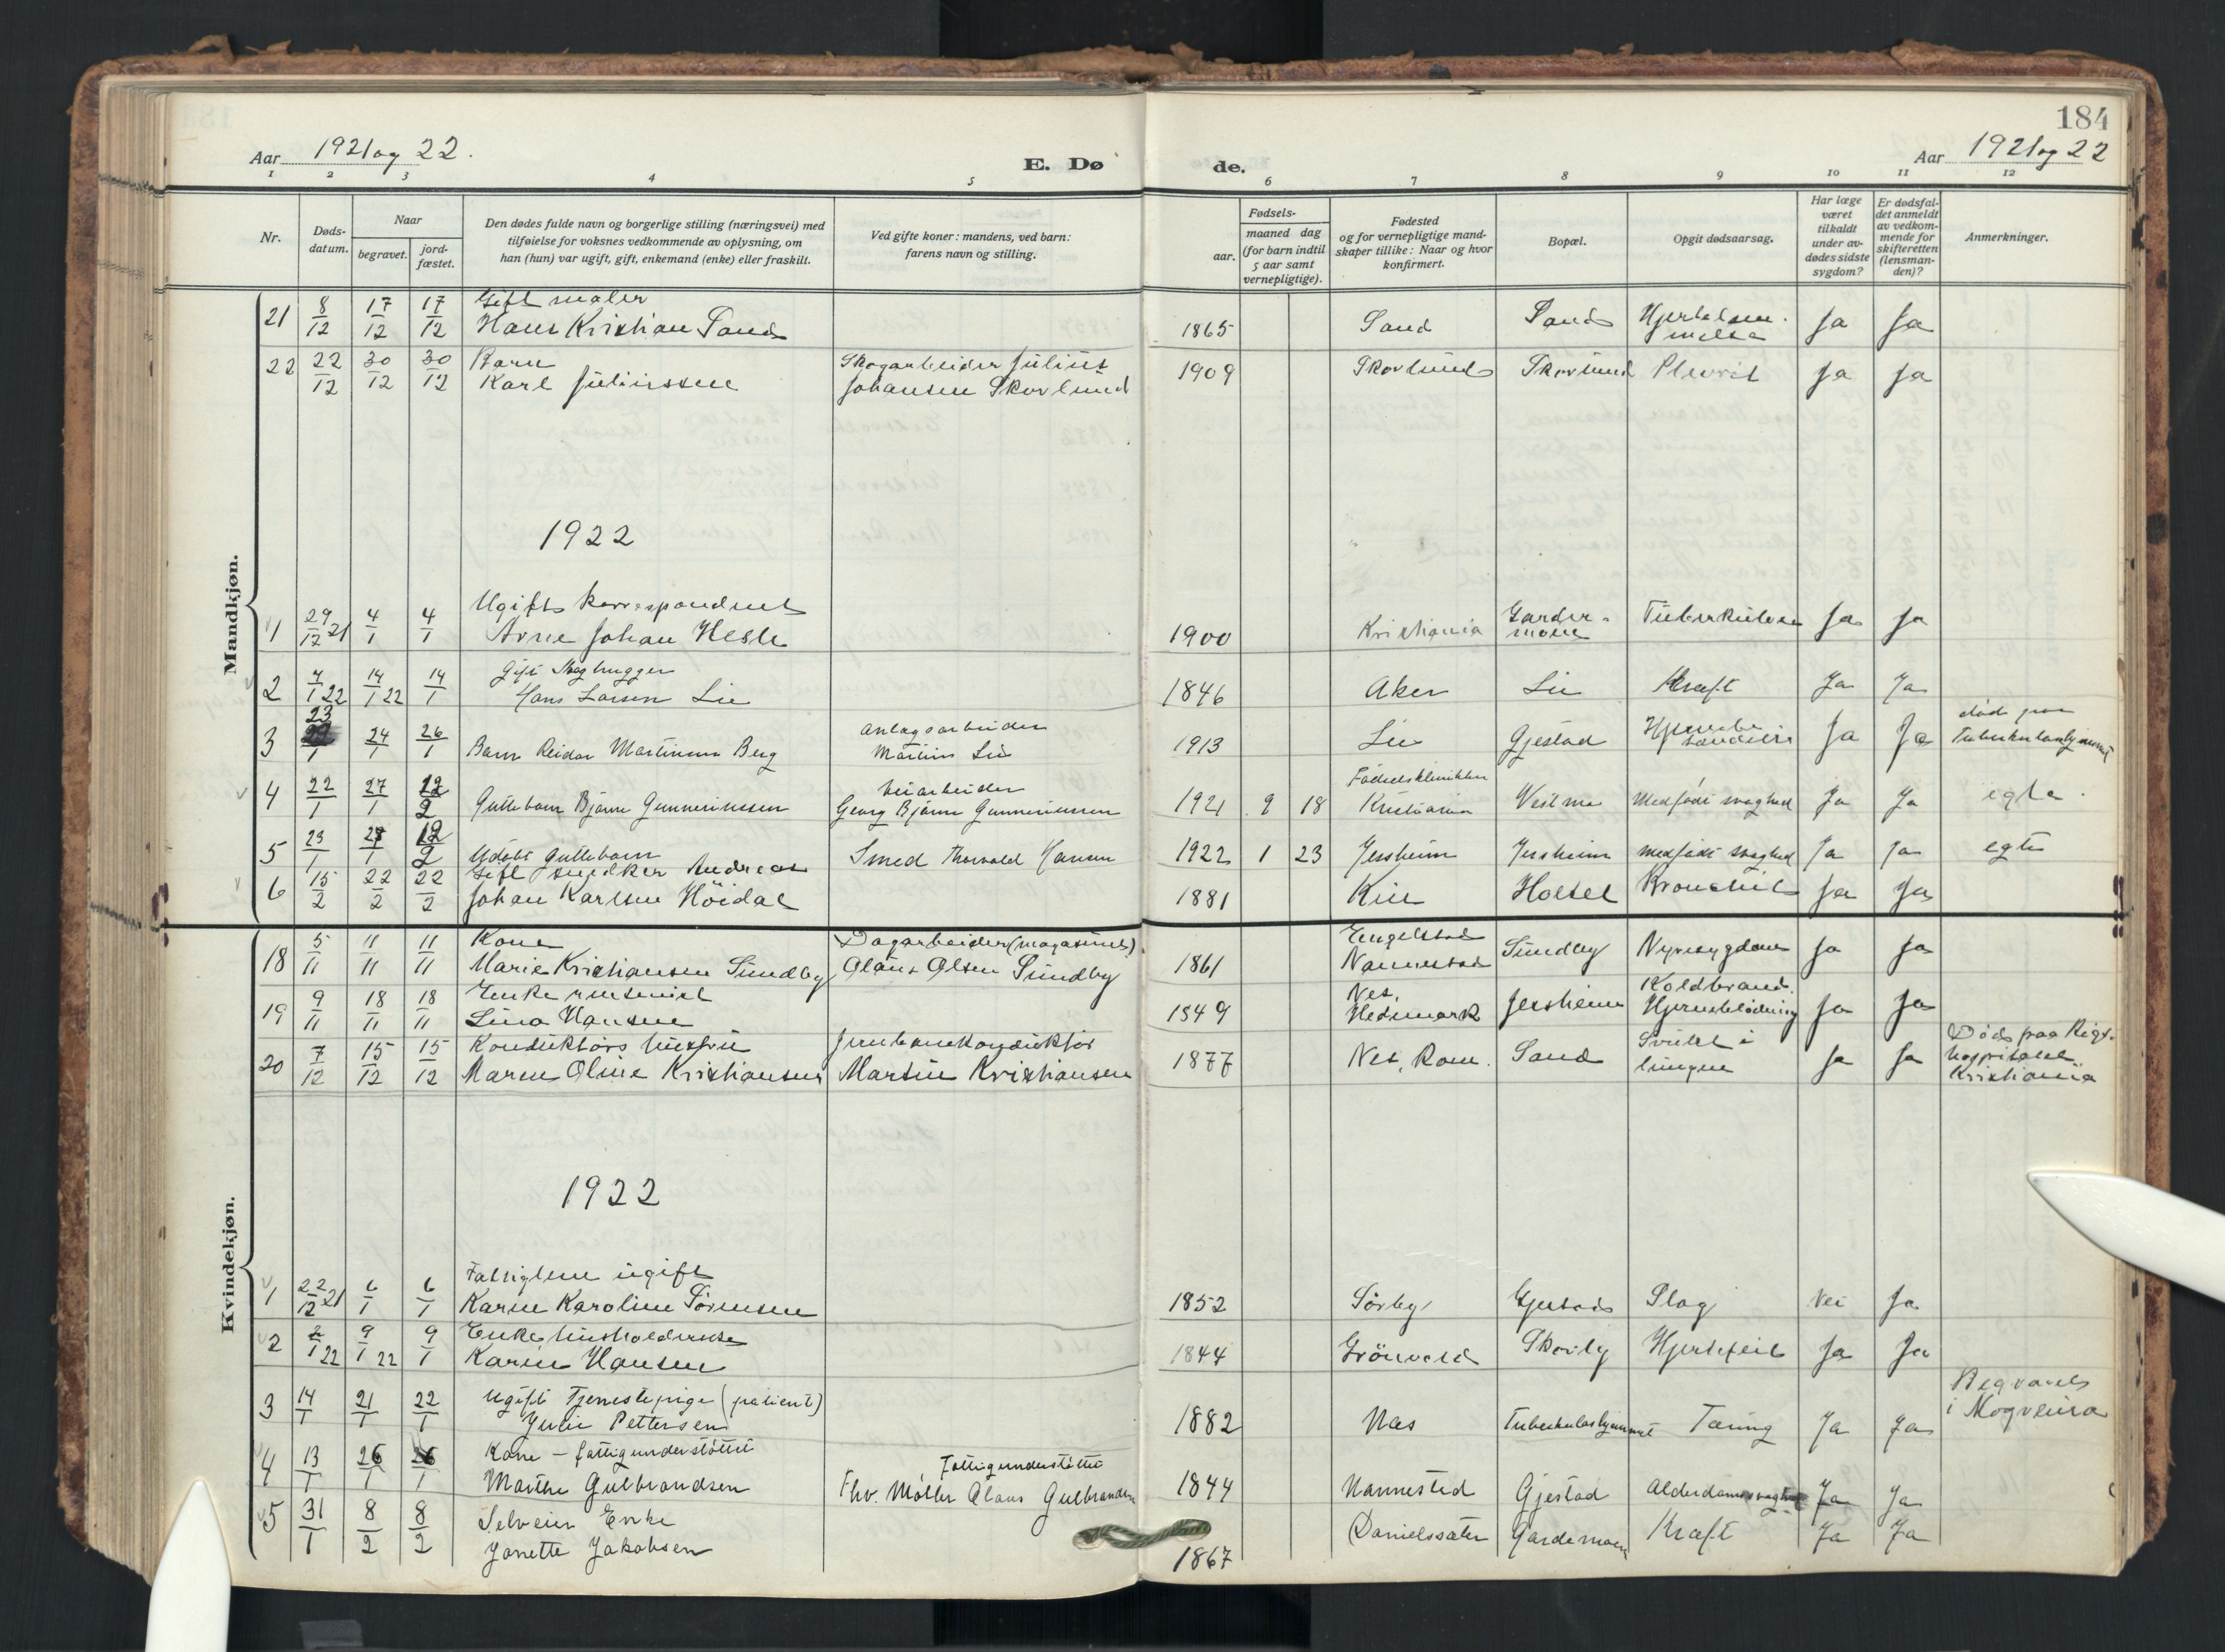 184
Aar 1921 og 22.
E. Dø
de.
Aar 1921 og 22
1 2 3 4 5 6 7 8 9 10 11 12
Nr.
Døds-
datum.
Naar
begravet.
jord-
fæstet.
Den dødes fulde navn og borgerlige stilling (næringsvei) med
tilføielse for voksnes vedkommende av oplysning, om
han (hun) var ugift, gift, enkemand (enke) eller fraskilt.
Ved gifte koner: mandens, ved barn:
farens navn og stilling.
Fødsels-
aar.
maaned dag
(for barn indtil
5 aar samt
vernepligtige).
Fødested
og for vernepligtige mand-
skaper tillike: Naar og hvor
konfirmert.
Bopæl.
Opgit dødsaarsag.
Har læge
været
tilkaldt
under av-
dødes sidste
sygdom?
Er dødsfal-
det anmeldt
av vedkom-
mende for
skifteretten
(lensman-
den)?
Anmerkninger.
Mandkjøn.
21 8/12 17/12 17/12 Gift maler
Hans Kristian Sand 1865 Sand Sand Ja Ja
22 22/12 30/12 30/12 Barn
Karl Juliussen Skogarbeider Julius
Johansen Skovlund 1909 Skovlund Skovlund Plevrit Ja Ja
1922
1 29/12 21 4/1 4/1 Ugift korrespondent
Arne Johan Hesle 1900 Kristiania Garder-
moen Tuberkulose Ja Ja
2 7/1 22 14/1 22 14/1 Gift
Hans Larsen Lie 1846 Aker Lie Kræft Ja Ja
3 23/1 24/1 26/1 Barn Reidar Martinsen Berg Anlægsarbeider
Martin Lie 1913 Lie Gjestad Ja Ja død paa
Tuberkulosehjemmet
4 22/1 27/1 12/2 Guttebarn Bjarne Gunneriussen Veiarbeider
Georg Bjarne Gunneriussen 1921 9 18 Fødselsklinikken
Kristiania Vestmo Medfødt svaghed Ja Ja egte.
5 23/1 27/1 12/2 Udøbt Guttebarn Smed Thorvald Hansen 1922 1 23 Jessheim Jessheim medfødt svaghed Ja Ja egte
6 15/2 22/2 22/2 Gift snedker Andreas
Johan Karlsen Höidal 1881 Holsel Bronchit Ja Ja
Kvindekjøn.
18 5/11 11/11 11/11 Kone
Marie Kristiansen Sundby Dagarbeider (magasinet)
Olaus Olsen Sundby 1861 Engelstad
Nannestad Sundby Nyresygdom Ja Ja
19 9/11 18/11 18/11 Enke rentenist
Lina Hansen 1849 Nes,
Hedemark Jessheim Koldbrand.
Hjerneblödning Ja Ja
20 7/12 15/12 15/12 Konduktörs hustru
Maren Oline Kristiansen Jernbanekonduktör
Martin Kristiansen 1877 Nes, Rom. Sand Svulst i
lungen Ja Ja Död paa Rigs-
hospitalet
Kristiania
1922
1 22/12 21 6/1 6/1 Fattiglem ugift
Karen Karoline Sörensen 1852 Sörby Gjestad Slag Nei Ja
2 2/1 22 9/1 22 9/1 Enke husholderske
Karen Hansen 1844 Grönvold Skovly Hjertefeil Ja Ja
3 14/1 21/1 22/1 Ugift Tjenestepige (patient)
Julie Pettersen 1882 Næs Tuberkulosehjemmet Tæring Ja Ja Begravet
i Mogreina
4 13/1 26/1 26/1 Kone - fattigunderstöttet
Marthe Gulbrandsen Fattigunderstöttet
Fhv. Møller Olaus Gulbrandsen 1844 Nannestad Gjestad Alderdomssvaghet Ja Ja
5 31/1 8/2 8/2 Selveier Enke
Janette Jakobsen 1867 Danielssæter Gardemoen Kræft Ja Ja